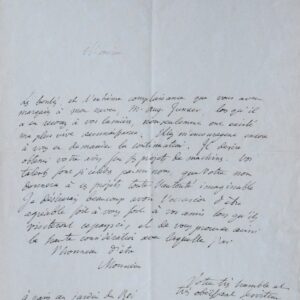 Monsieur
Les bontés et l'extrême complaisance que vous avez
à mon neveu Mr. Juncker lorsqu'il
a eu recours à vos lumières, non seulement ont excité
ma plus vive reconnaissance, Elles m'encouragent encore
à vous en demander la continuation. Je désire
obtenir votre avis sur le projet de machine. Vos
talens
à ces projets toute l'autorité imaginable
Je désirerais beaucoup avoir l'occasion d'être
agréable soit à vous, soit à vos amis lors qu'ils
viendront, et de vous prouver aussi
la haute considération avec laquelle j'ai
l'honneur d'être
Monsieur
Votre très humble et
très obéissant serviteur
à Paris au jardin du Roi